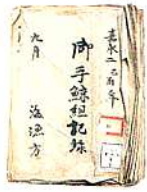 嘉永二己酉年
御手鯨組記録
九月
海漁方